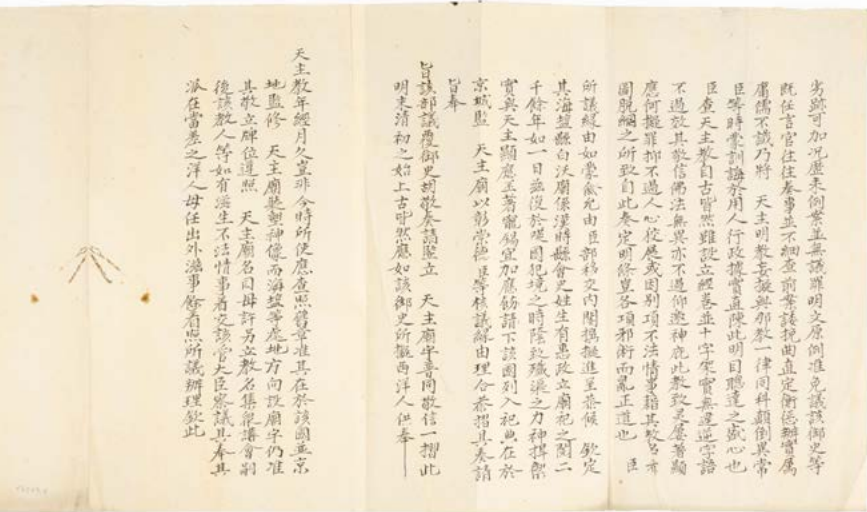 劣跡可加况歷来例案並無議罪明文原倒准免議該御史等
既任言官往往奏事並不細查前案諉捝曲直定衡恁辦實属
庸儒不識乃將　天主明教妄擬與邪教一律同科顛倒異常
臣等時蒙訓誨於用人行政據實直陳此明目聰達之盛心也
臣查天主教自古皆然雖設立經卷並十字架實無違逆字語
不過放其敬信佛法無異亦不過仰邀神庇此教致灵屢著顯
應何擬罪抑不過人心狡展或因别項不法情事藉其教名希
圖脱綱之所致自此奏定明條豈各項邪術而亂正道也　臣
所議緣由如蒙俞允由臣部移交内閣撝擬進呈恭候　欽定
其海塩縣白沃廟係漢時縣會史姓生有惠政立廟祀之閱二
千餘年如一日兹復於咭國犯境之時陰致殱渠之力神捍禦
實與天主顯應丕著寵錫宜加應飭請下該國列入祀典在於
京城監　天主廟以彰崇德臣等核議緣由理合恭摺具奏請
旨奉
旨該部議覆御史胡敬奏請監立　天主廟宇普同敬信一摺此
明末清初之始上古皆然應如該御史所擬西洋人供奉
天主教年經月久豈非今時所使應查照舊章准其在於該國並京
地監修　天主廟聽塑神像而海塩等處地方向設廟宇仍准
其敬立碑位遵照　天主廟名目毋許另立教名集眾講會嗣
後該教人等如有滋生不法情事着交該管大臣察議其奉其
派在當差之洋人毋任出外滋事餘着照所議辦理欽此